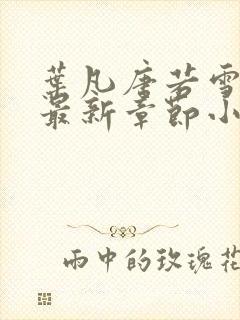 葉凡唐若雪
最新章節小
雨中的玫瑰花